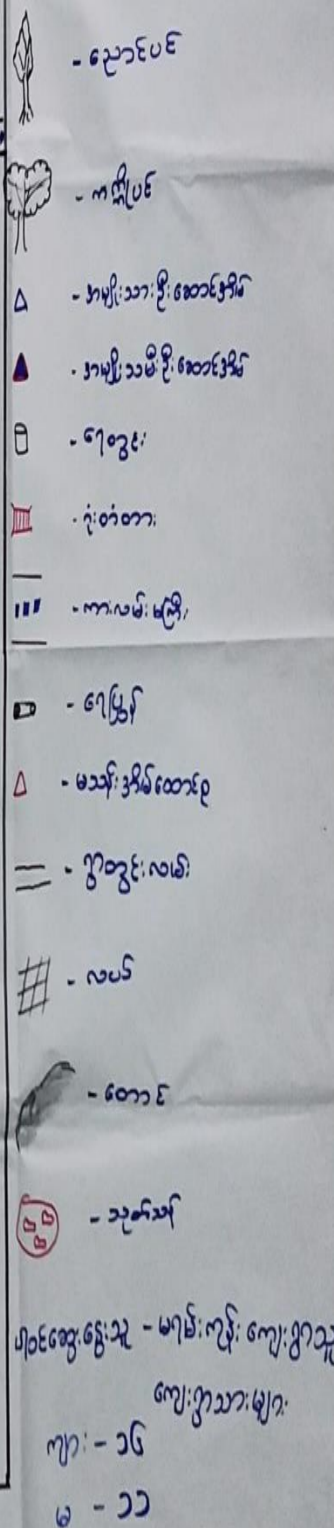 - ညောင်ပင်
- ကုက္ကိုပင်
- အမျိုးသားဦးဆောင်အိမ်
- အမျိုးသမီးဦးဆောင်အိမ်
- ရေတွင်း
- ဂုံးတံတား
- ကားလမ်းမကြီး
- ရေပြွန်
- မသန်းအိမ်ထောင်စု
- ရွာတွင်းလမ်း
- လယ်
- တောင်
- သုတ်သန်
ပါဝင်ဆွေးနွေးသူ - မရမ်းကုန်း ကျေးရွာသူ
ကျေးရွာသားများ
ကျား - ၁၆
မ - ၁၁